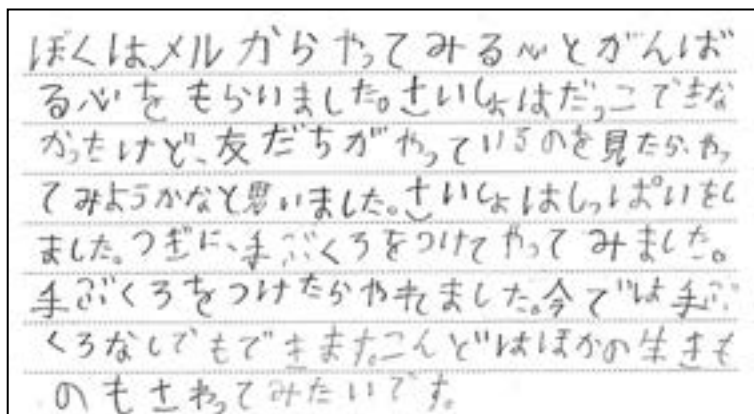 ぼくは、メルからやってみる心とがんば
る心をもらいました。さいしょはだっこできな
かったけど、友だちがやっているのを見たら、やっ
てみようかなと思いました。さいしょはしっぱいをし
ました。つぎに、手ぶくろをつけてやってみました。
手ぶくろをつけたらやれました。今では手ぶ
くろなしでもできます。こんどはほかの生きも
のもさわってみたいです。